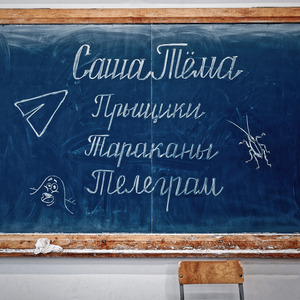 Саша Тёма
Прыщики
Тараканы
Телеграм